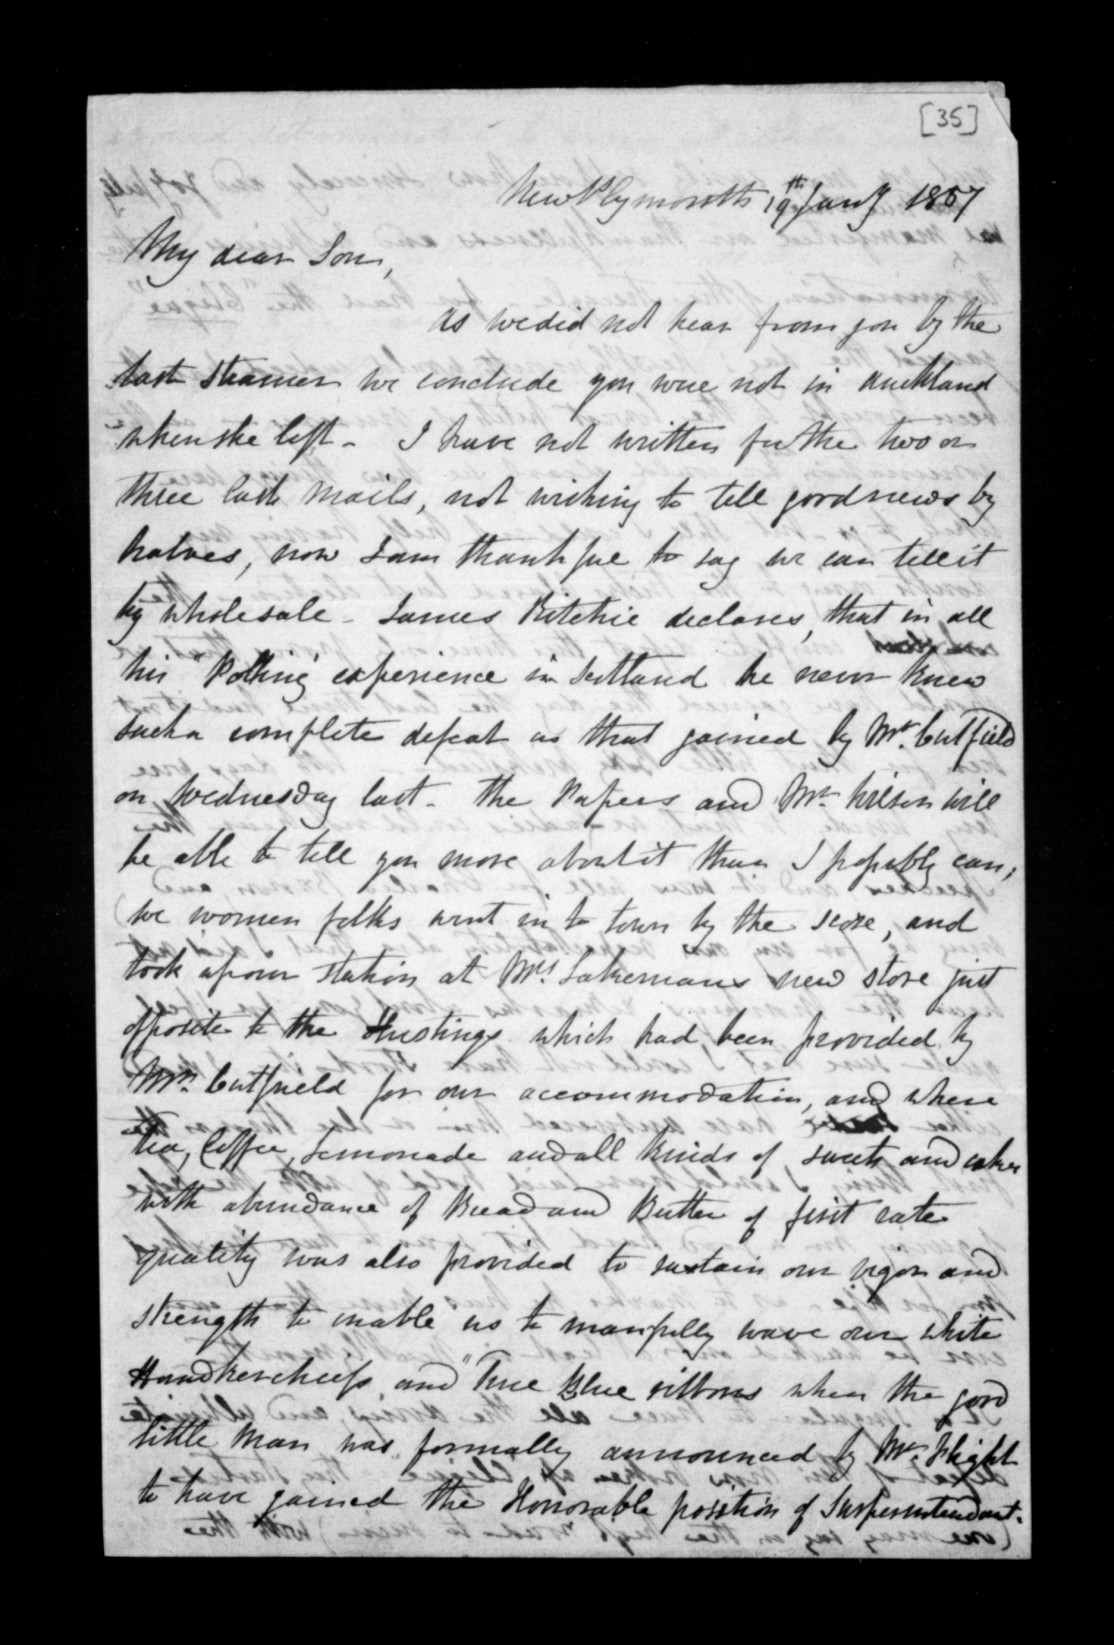 [35]
New Plymouth 19th Jany 1857
My dear Son,
As we did not hear from you by the
last steamer we conclude you were not in Auckland
when she left - I have not written for the two or
three last mails, not wishing to tell good news by
halves, now I am thankful to say we can tell it
by wholesale - James Ritchie declares, that in all
his "Polling" experience in Scotland he never knew
such a complete defeat as that gained by Mr. Cutfield
on Wednesday last - The Papers and Mr. Wilson will
be able to tell you more about it than I possibly can,
we women folks went in to town by the score, and
took up our station at Mrs. Lakemans new store just
opposite to the Hustings which had been provided by
Mrs. Cutfield for our accommodation, and where
Tea, Coffee, Lemonade and all kinds of sweets and cakes
with abundance of Bread and Butter of first rate
quality was also provided to sustain our vigor and
strength to enable us to manfully wave our white
Handkerchiefs and "True Blue ribbons when the good
little Man was formally announced by Mr. Flight
to have gained the Honorable position of Superintendant.